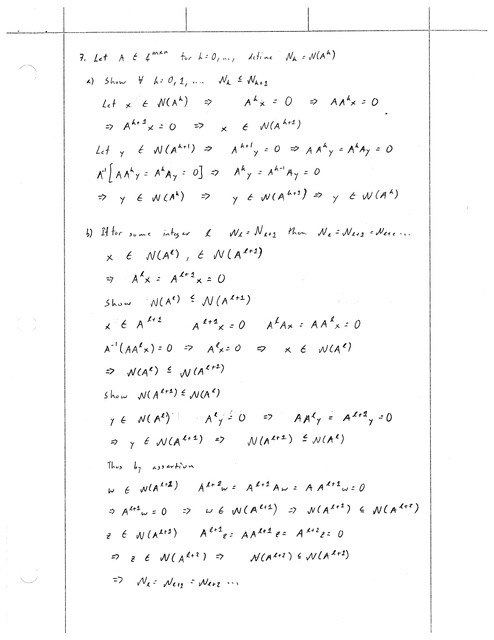 7. Let A ∈ ₵^mxn for k=0,..., define N_k = N(A^k)
a) Show ∀ k=0,1,.... N_k ⊆ N_k+1
Let x ∈ N(A^k) ⇒ A^k x = 0 ⇒ AA^k x = 0
⇒ A^k+1 x = 0 ⇒ x ∈ N(A^k+1)
Let y ∈ N(A^k+1) ⇒ A^k+1 y = 0 ⇒ AA^k y = A^k Ay = 0
A^-1[AA^k y = A^k Ay = 0] ⇒ A^k y = A^k-1 Ay = 0
⇒ y ∈ N(A^k) ⇒ y ∈ N(A^k+1) ⇒ y ∈ N(A^k)
b) If for some integer ℓ N_ℓ = N_ℓ+1 then N_ℓ = N_ℓ+1 = N_ℓ+2 ...
x ∈ N(A^ℓ), ∈ N(A^ℓ+1)
⇒ A^ℓ x = A^ℓ+1 x = 0
Show N(A^ℓ) ⊆ N(A^ℓ+1)
x ∈ A^ℓ+1 A^ℓ+1 x = 0 A^ℓ Ax = AA^ℓ x = 0
A^-1(AA^ℓ x) = 0 ⇒ A^ℓ x = 0 ⇒ x ∈ N(A^ℓ)
⇒ N(A^ℓ) ⊆ N(A^ℓ+1)
Show N(A^ℓ+1) ⊆ N(A^ℓ)
y ∈ N(A^ℓ) A^ℓ y = 0 ⇒ AA^ℓ y = A^ℓ+1 y = 0
⇒ y ∈ N(A^ℓ+1) ⇒ N(A^ℓ+1) ⊆ N(A^ℓ)
Thus by assertion
w ∈ N(A^ℓ+2) A^ℓ+2 w = A^ℓ+1 Aw = A A^ℓ+1 w = 0
⇒ A^ℓ+1 w = 0 ⇒ w ∈ N(A^ℓ+1) ⇒ N(A^ℓ+1) ⊆ N(A^ℓ+2)
z ∈ N(A^ℓ+1) A^ℓ+1 z = AA^ℓ+1 z = A^ℓ+2 z = 0
⇒ z ∈ N(A^ℓ+2) ⇒ N(A^ℓ+2) ⊆ N(A^ℓ+1)
⇒ N_ℓ = N_ℓ+1 = N_ℓ+2 ...